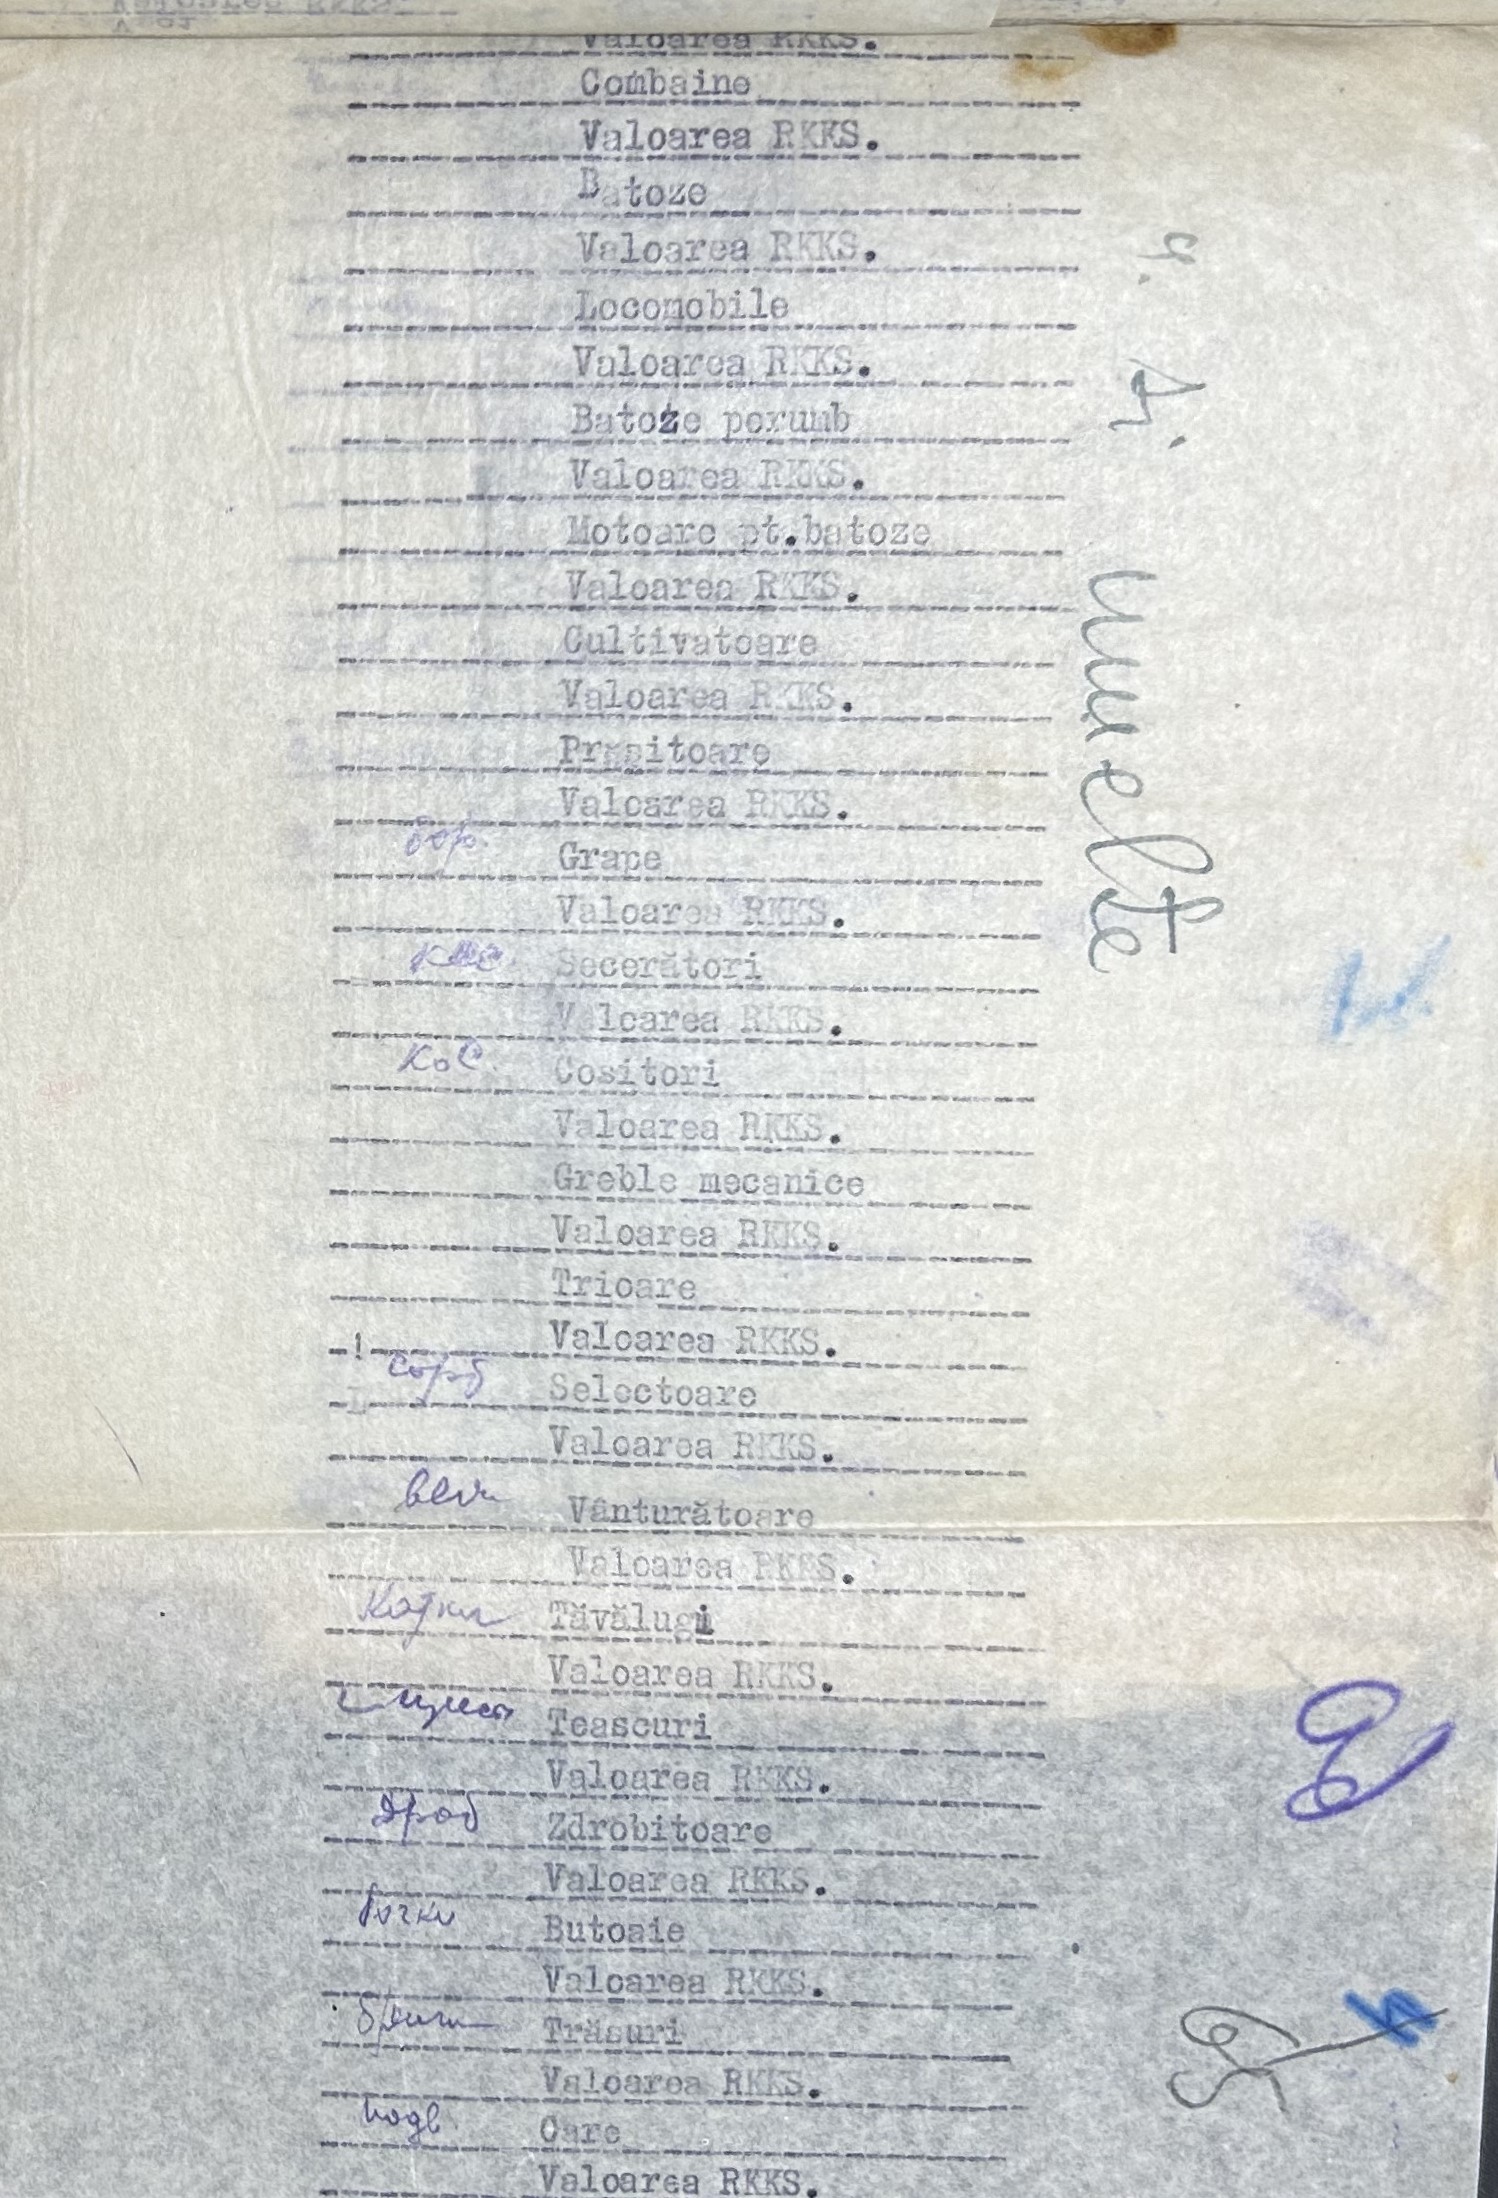 Valoarea RKKS.
Combaine
Valoarea RKKS.
Batoze
Valoarea RKKS.
Locomobile
Valoarea RKKS.
Batoze porumb
Valoarea RKKS.
Motoare pt.batoze
Valoarea RKKS.
Cultivatoare
Valoarea RKKS.
Prăşitoare
Valoarea RKKS.
бор.
Grape
Valoarea RKKS.
Secerători
Valoarea RKKS.
кос.
Cositori
Valoarea RKKS.
Greble mecanice
Valoarea RKKS.
Trioare
Valoarea RKKS.
сорт
Selectoare
Valoarea RKKS.
Vânturătoare
Valoarea RKKS.
Катки
Tăvălugi
Valoarea RKKS.
Teascuri
Valoarea RKKS.
дроб
Zdrobitoare
Valoarea RKKS.
бочки
Butoaie
Valoarea RKKS.
Trăsuri
Valoarea RKKS.
подв.
Care
Valoarea RKKS.
unelte